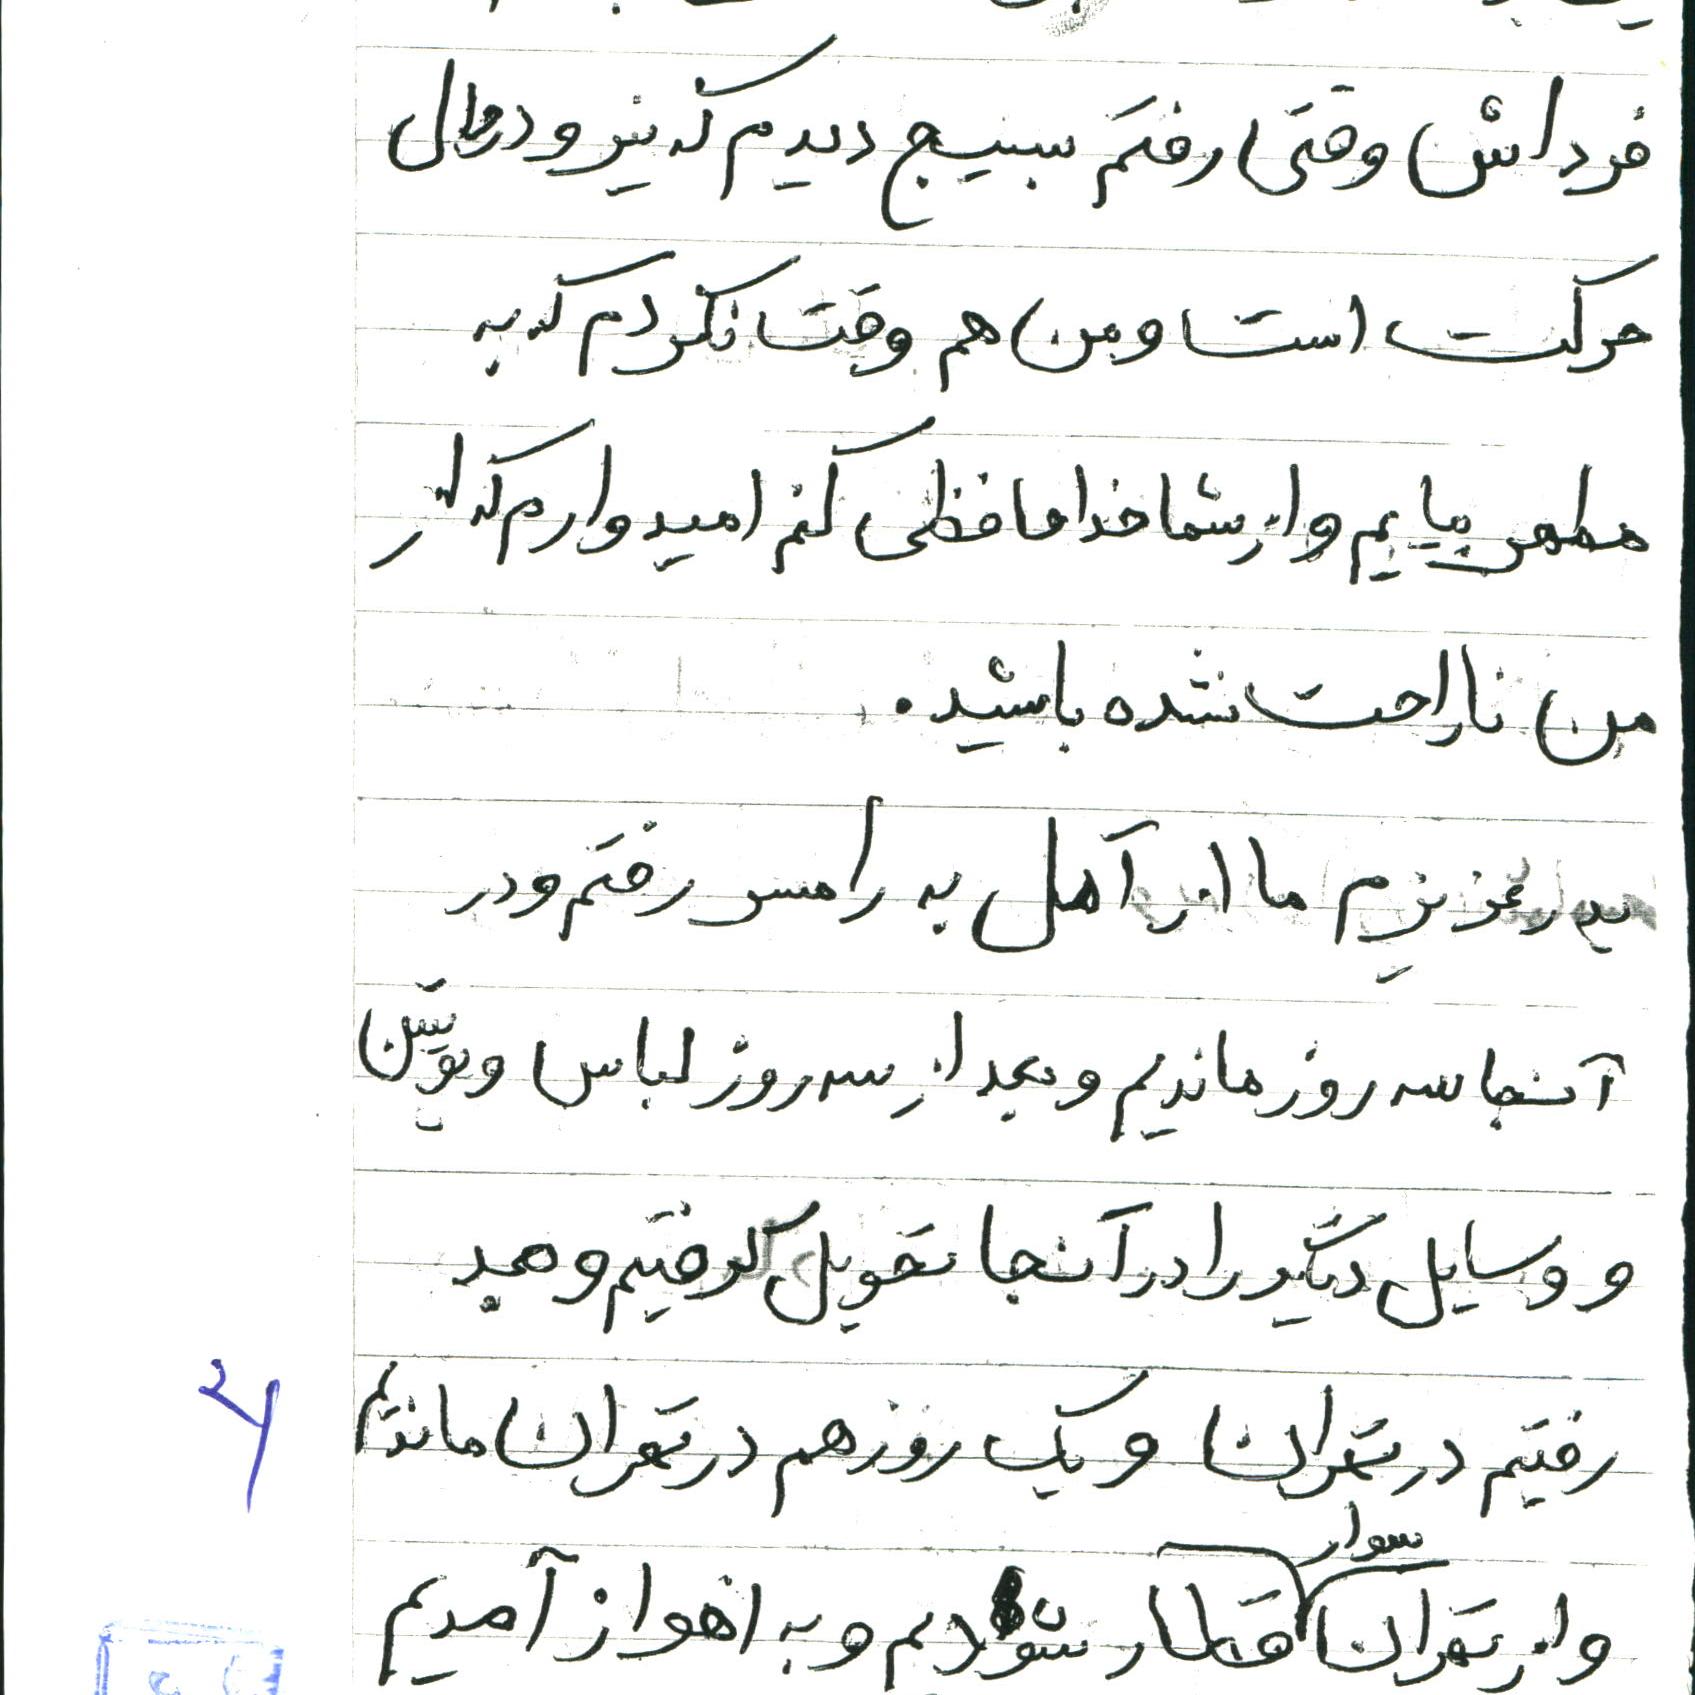 فرداش وقتی رفتم بسیج دیدم که نیرو درحال
حرکت است و من هم وقت نکردم که به
مطهر بیایم و از شما خداحافظی کنم امیدوارم که از
من ناراحت نشده باشید.
پدر عزیزم ما از آمل به رامسر رفتم و در
آنجا سه روز ماندیم و بعد از سه روز لباس و پوتین
و وسایل دیگر را در آنجا تحویل گرفتیم و بعد
رفتیم در تهران و یک روز هم در تهران ماندیم
و از تهران سوار قطار شدیم و به اهواز آمدیم
۲